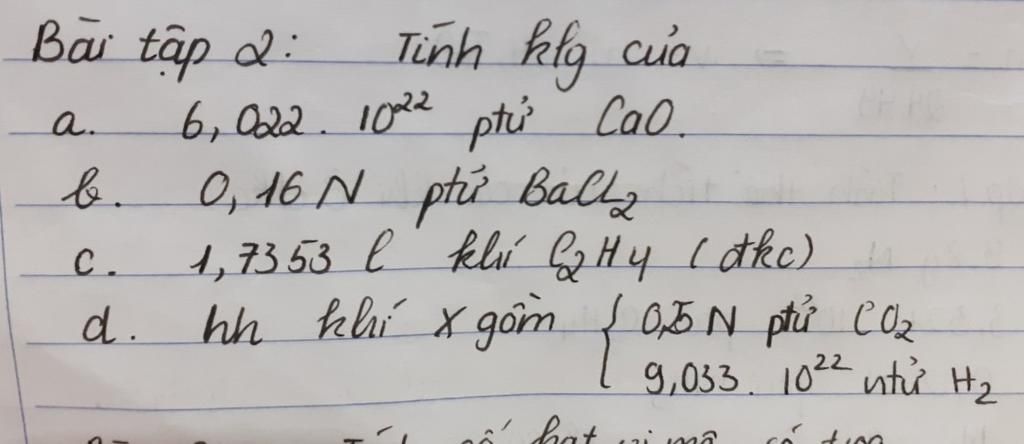 Bài tập 2: Tính klg của
a. 6,022 . 10²² ptử CaO.
b. 0,16 N ptử BaCl₂
c. 1,7353 l khí C₂H₄ (đkc)
d. hh khí X gồm { 0,5 N ptử CO₂
9,033 . 10²² ntử H₂
số hạt vi mô có trong